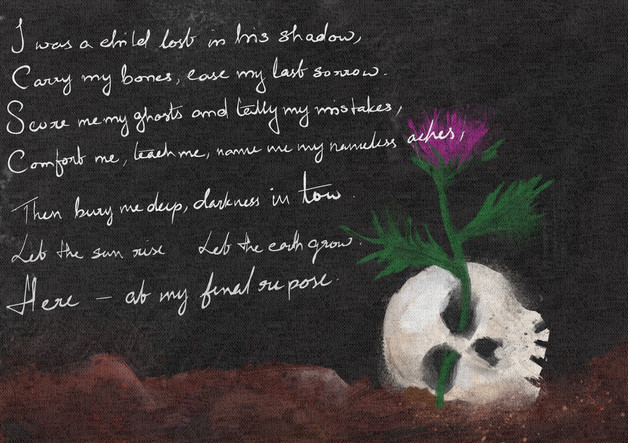 I was a child lost in his shadow,
Carry my bones, ease my last sorrow.
Scare me my ghosts and tally my mistakes,
Comfort me, teach me, name me my nameless aches,
Then bury me deep, darkness in tow.
Let the sun rise Let the earth grow.
Here — at my final repose.